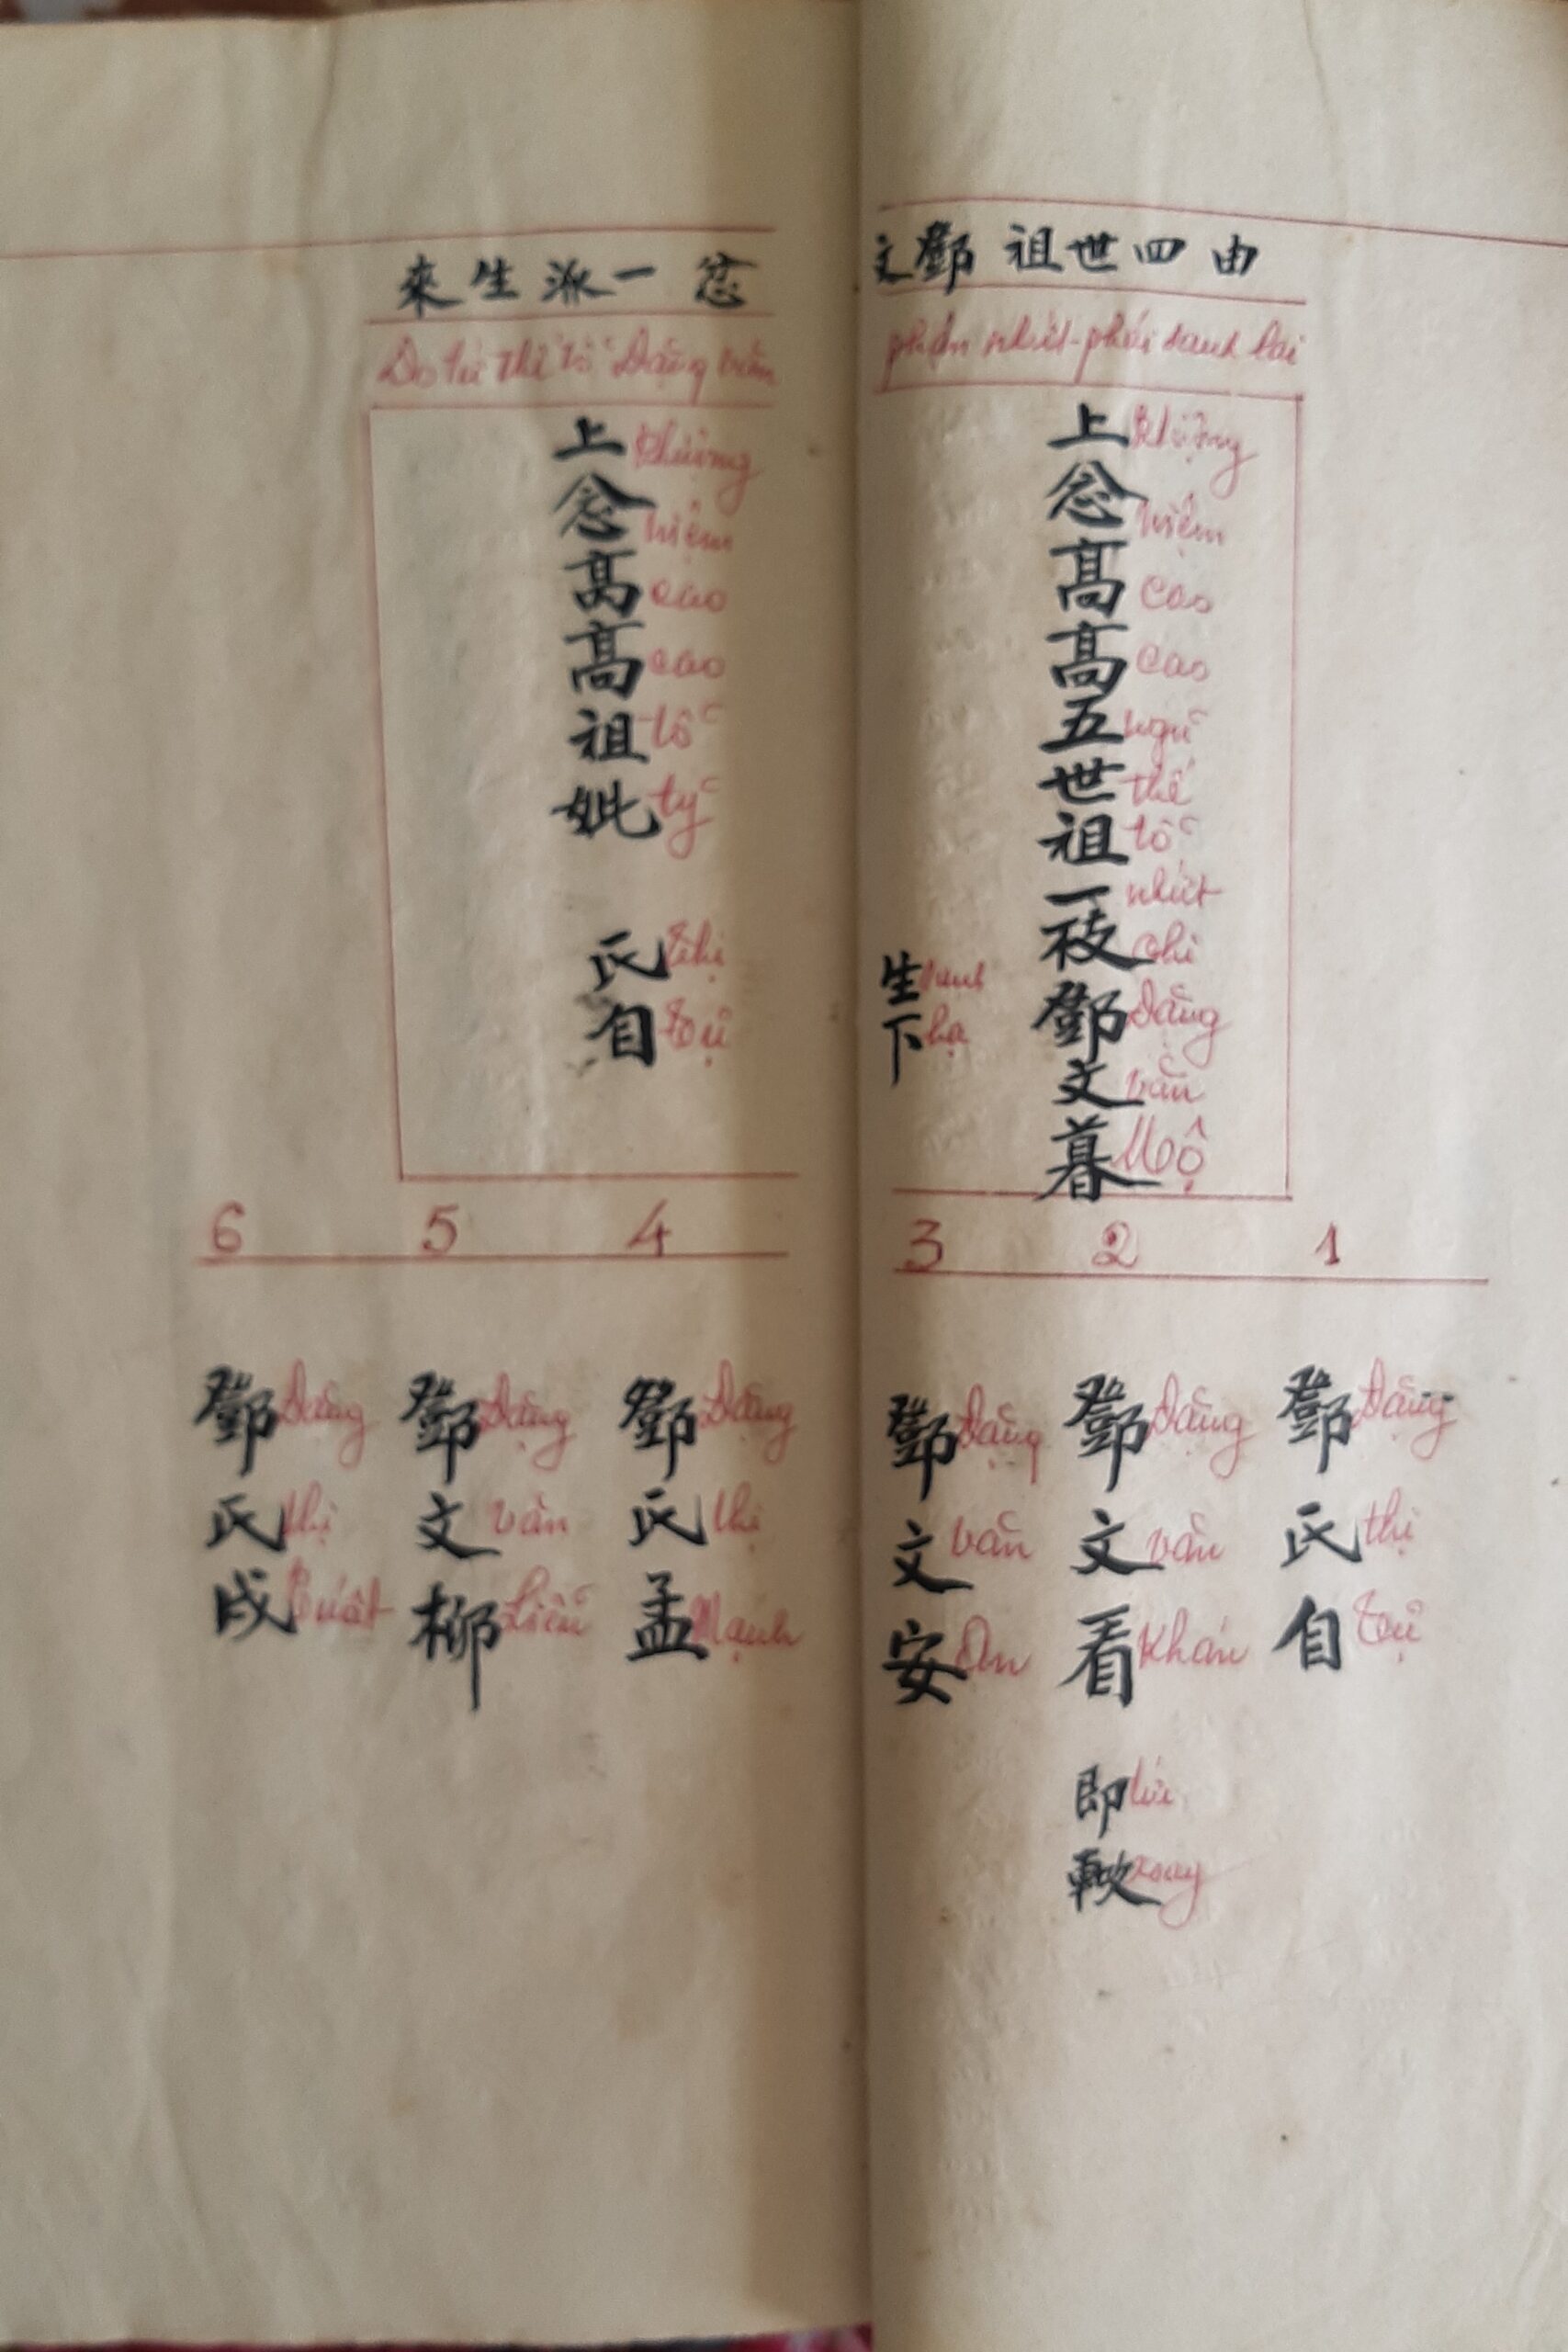 由四世祖鄧文
忿一派生來
Do tứ thế tổ Đặng văn
phẫn nhứt phái sanh lai
上 thượng
念 niệm
高 cao
高 cao
五 ngũ
世 thế
祖 tổ
一 nhứt
枝 chi
鄧 Đặng
文 văn
暮 Mộ
生 sanh
下 hạ
上 thượng
念 niệm
高 cao
高 cao
祖 tổ
妣 tỷ
氏 thị
自 Tự
1
鄧 Đặng
氏 thị
自 Tự
2
鄧 Đặng
文 văn
看 Khán
即 tức
xoay
3
鄧 Đặng
文 văn
安 An
4
鄧 Đặng
氏 thị
孟 Mạnh
5
鄧 Đặng
文 văn
柳 Liễu
6
鄧 Đặng
氏 thị
戌 Tuất